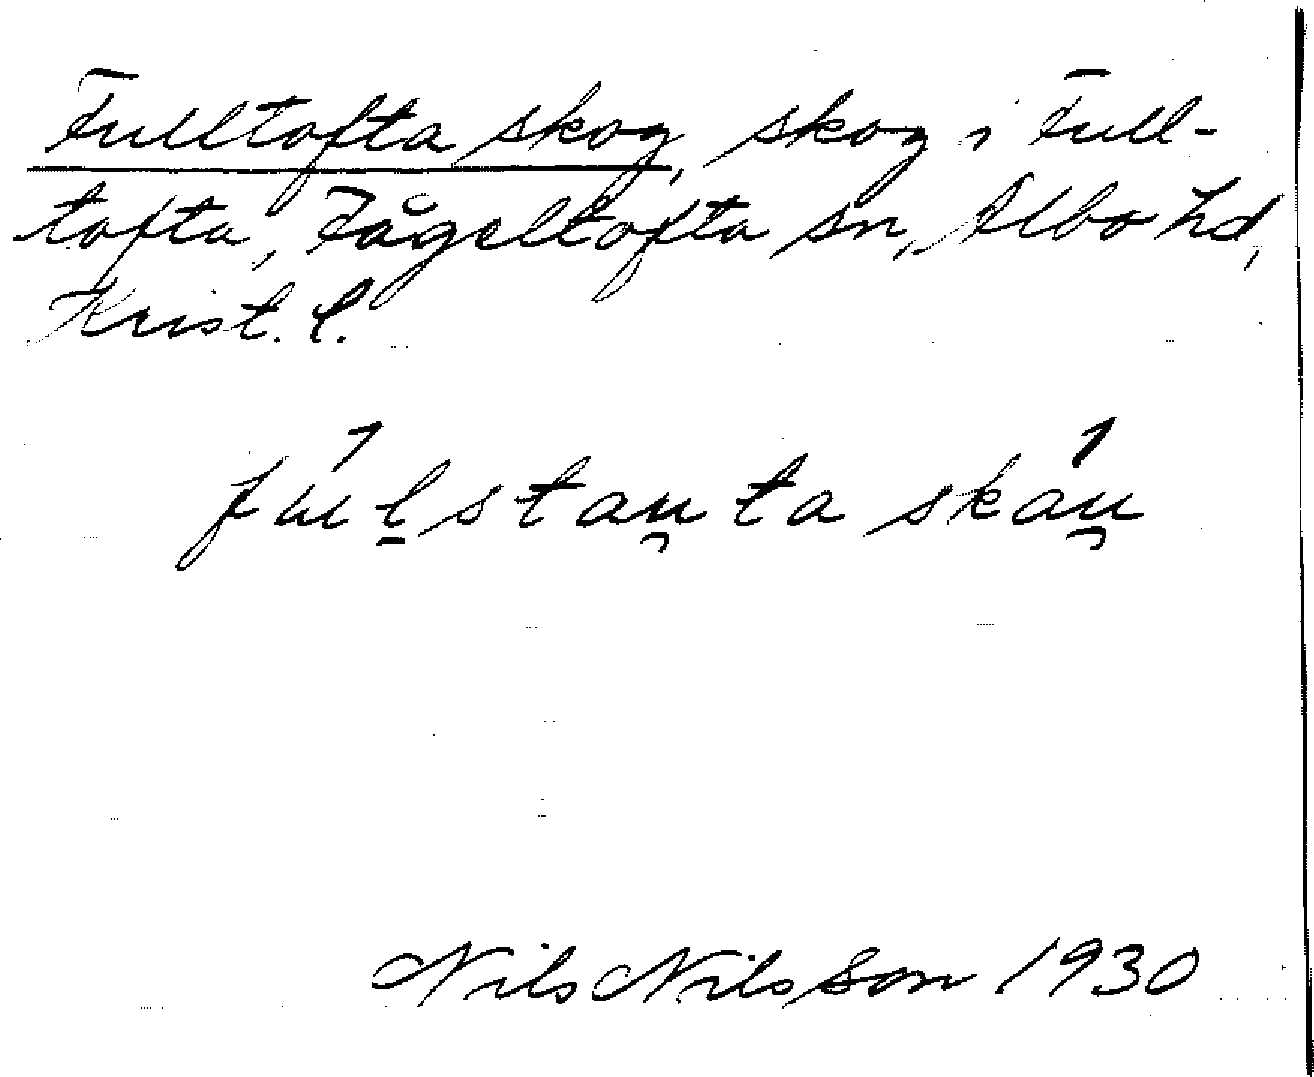 Fulltofta skog, skog i Full-
tofta, Fågeltofta sn, Albo hd,
Krist. l.
fúl̠stau̯ta skáu̯
Nils Nilsson 1930